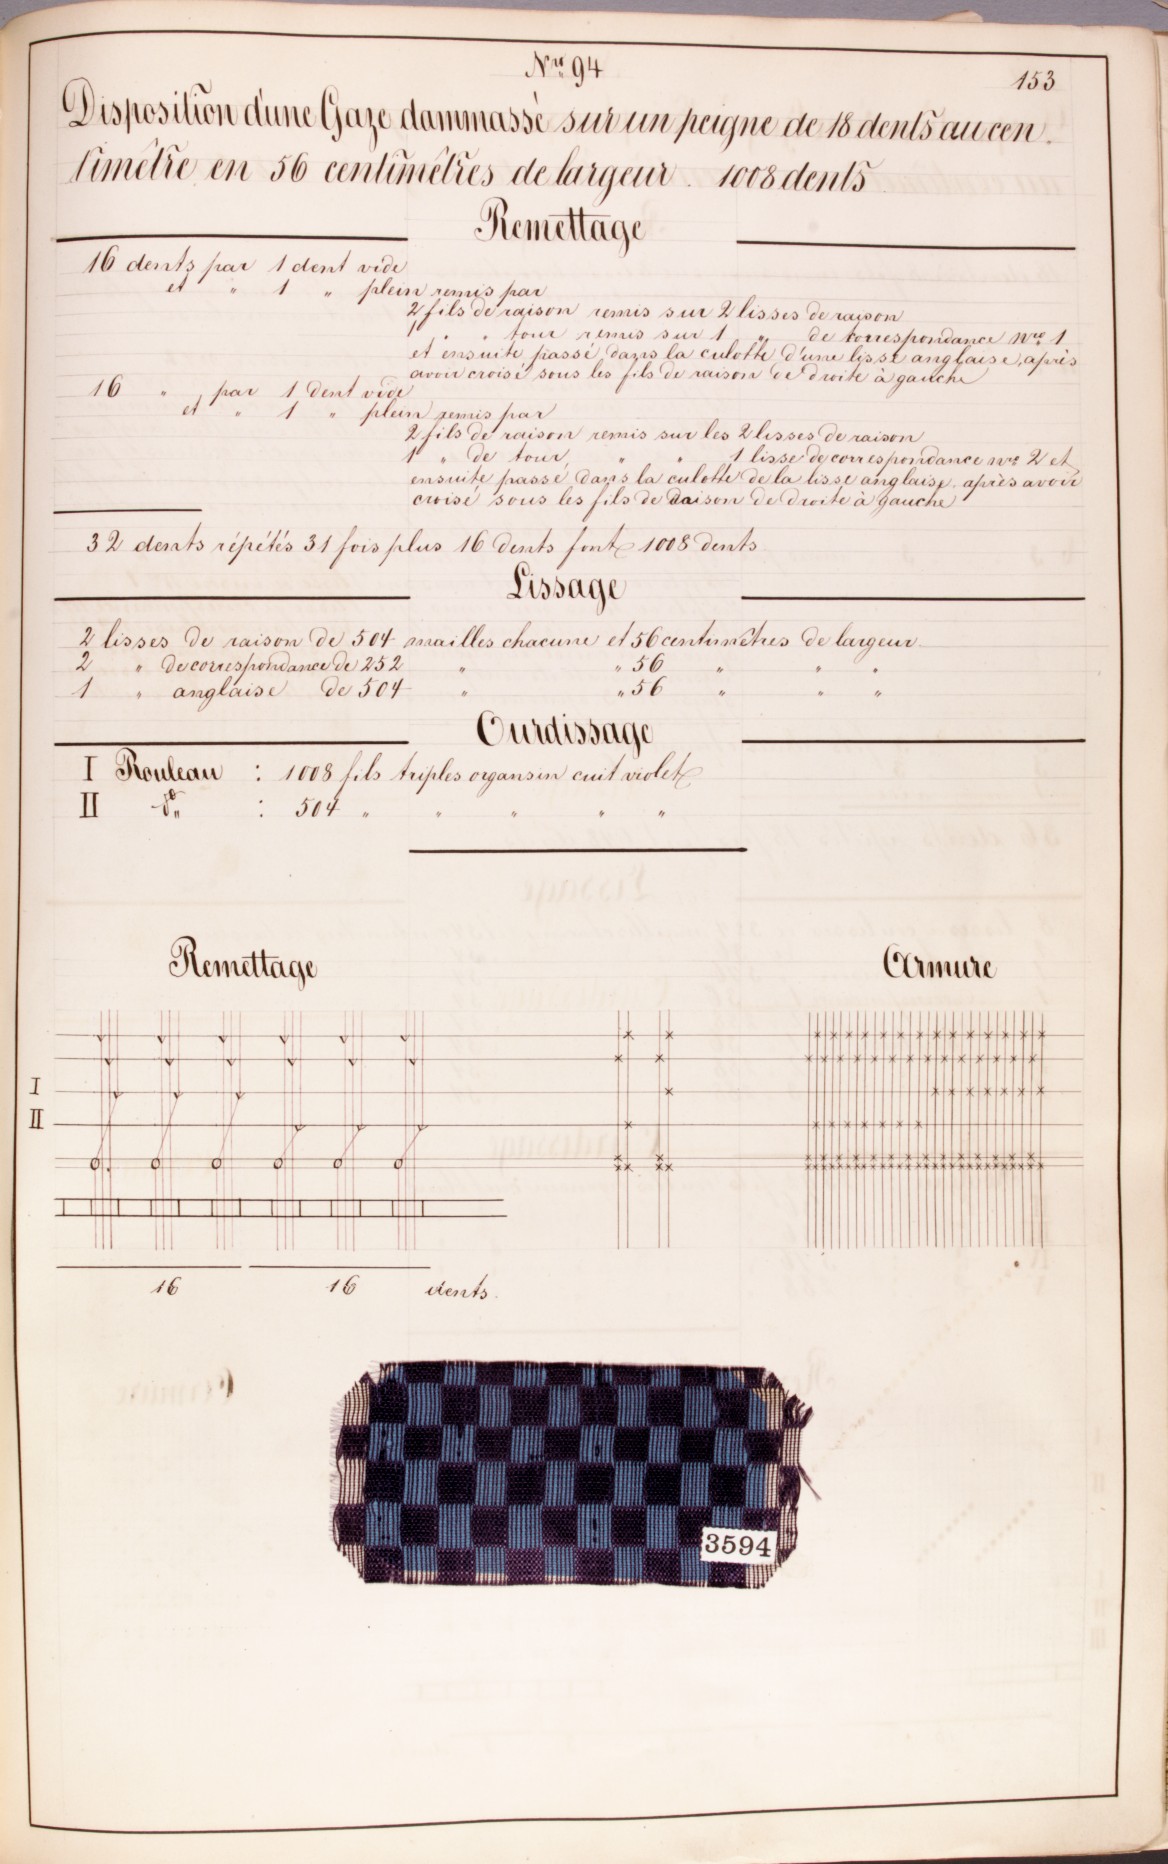 Nro 94
153
Disposition d'une Gaze dammassé sur un peigne de 18 dents au cen.
timêtre en 56 centimêtres de largeur. 1008 dents
Remettage
16 dents par 1 dent vide
et " 1 " plein remis par
2 fils de raison remis sur 2 lisses de raison
1 " " tour remis sur 1 " de correspondance Nro 1
et ensuite passé dans la culotte d'une lisse anglaise, après
avoir croisé sous les fils de raison de droite à gauche
16 " par 1 dent vide
et " 1 " plein remis par
2 fils de raison remis sur les 2 lisses de raison
1 " de tour " " 1 lisse de correspondance nro 2 et
ensuite passé dans la culotte de la lisse anglaise. après avoir
croisé sous les fils de raison de droite à gauche
32 dents répétés 31 fois plus 16 dents font 1008 dents
Lissage
2 lisses de raison de 504 mailles chacune et 56 centimêtres de largeur
2 " de correspondance de 252 " " 56 " " "
1 " anglaise de 504 " " 56 " " "
Ourdissage
I Rouleau : 1008 fils triples organsin cuit violet
II do " : 504 " " " " "
Remettage
Armure
I
II
16 16 dents.
3594